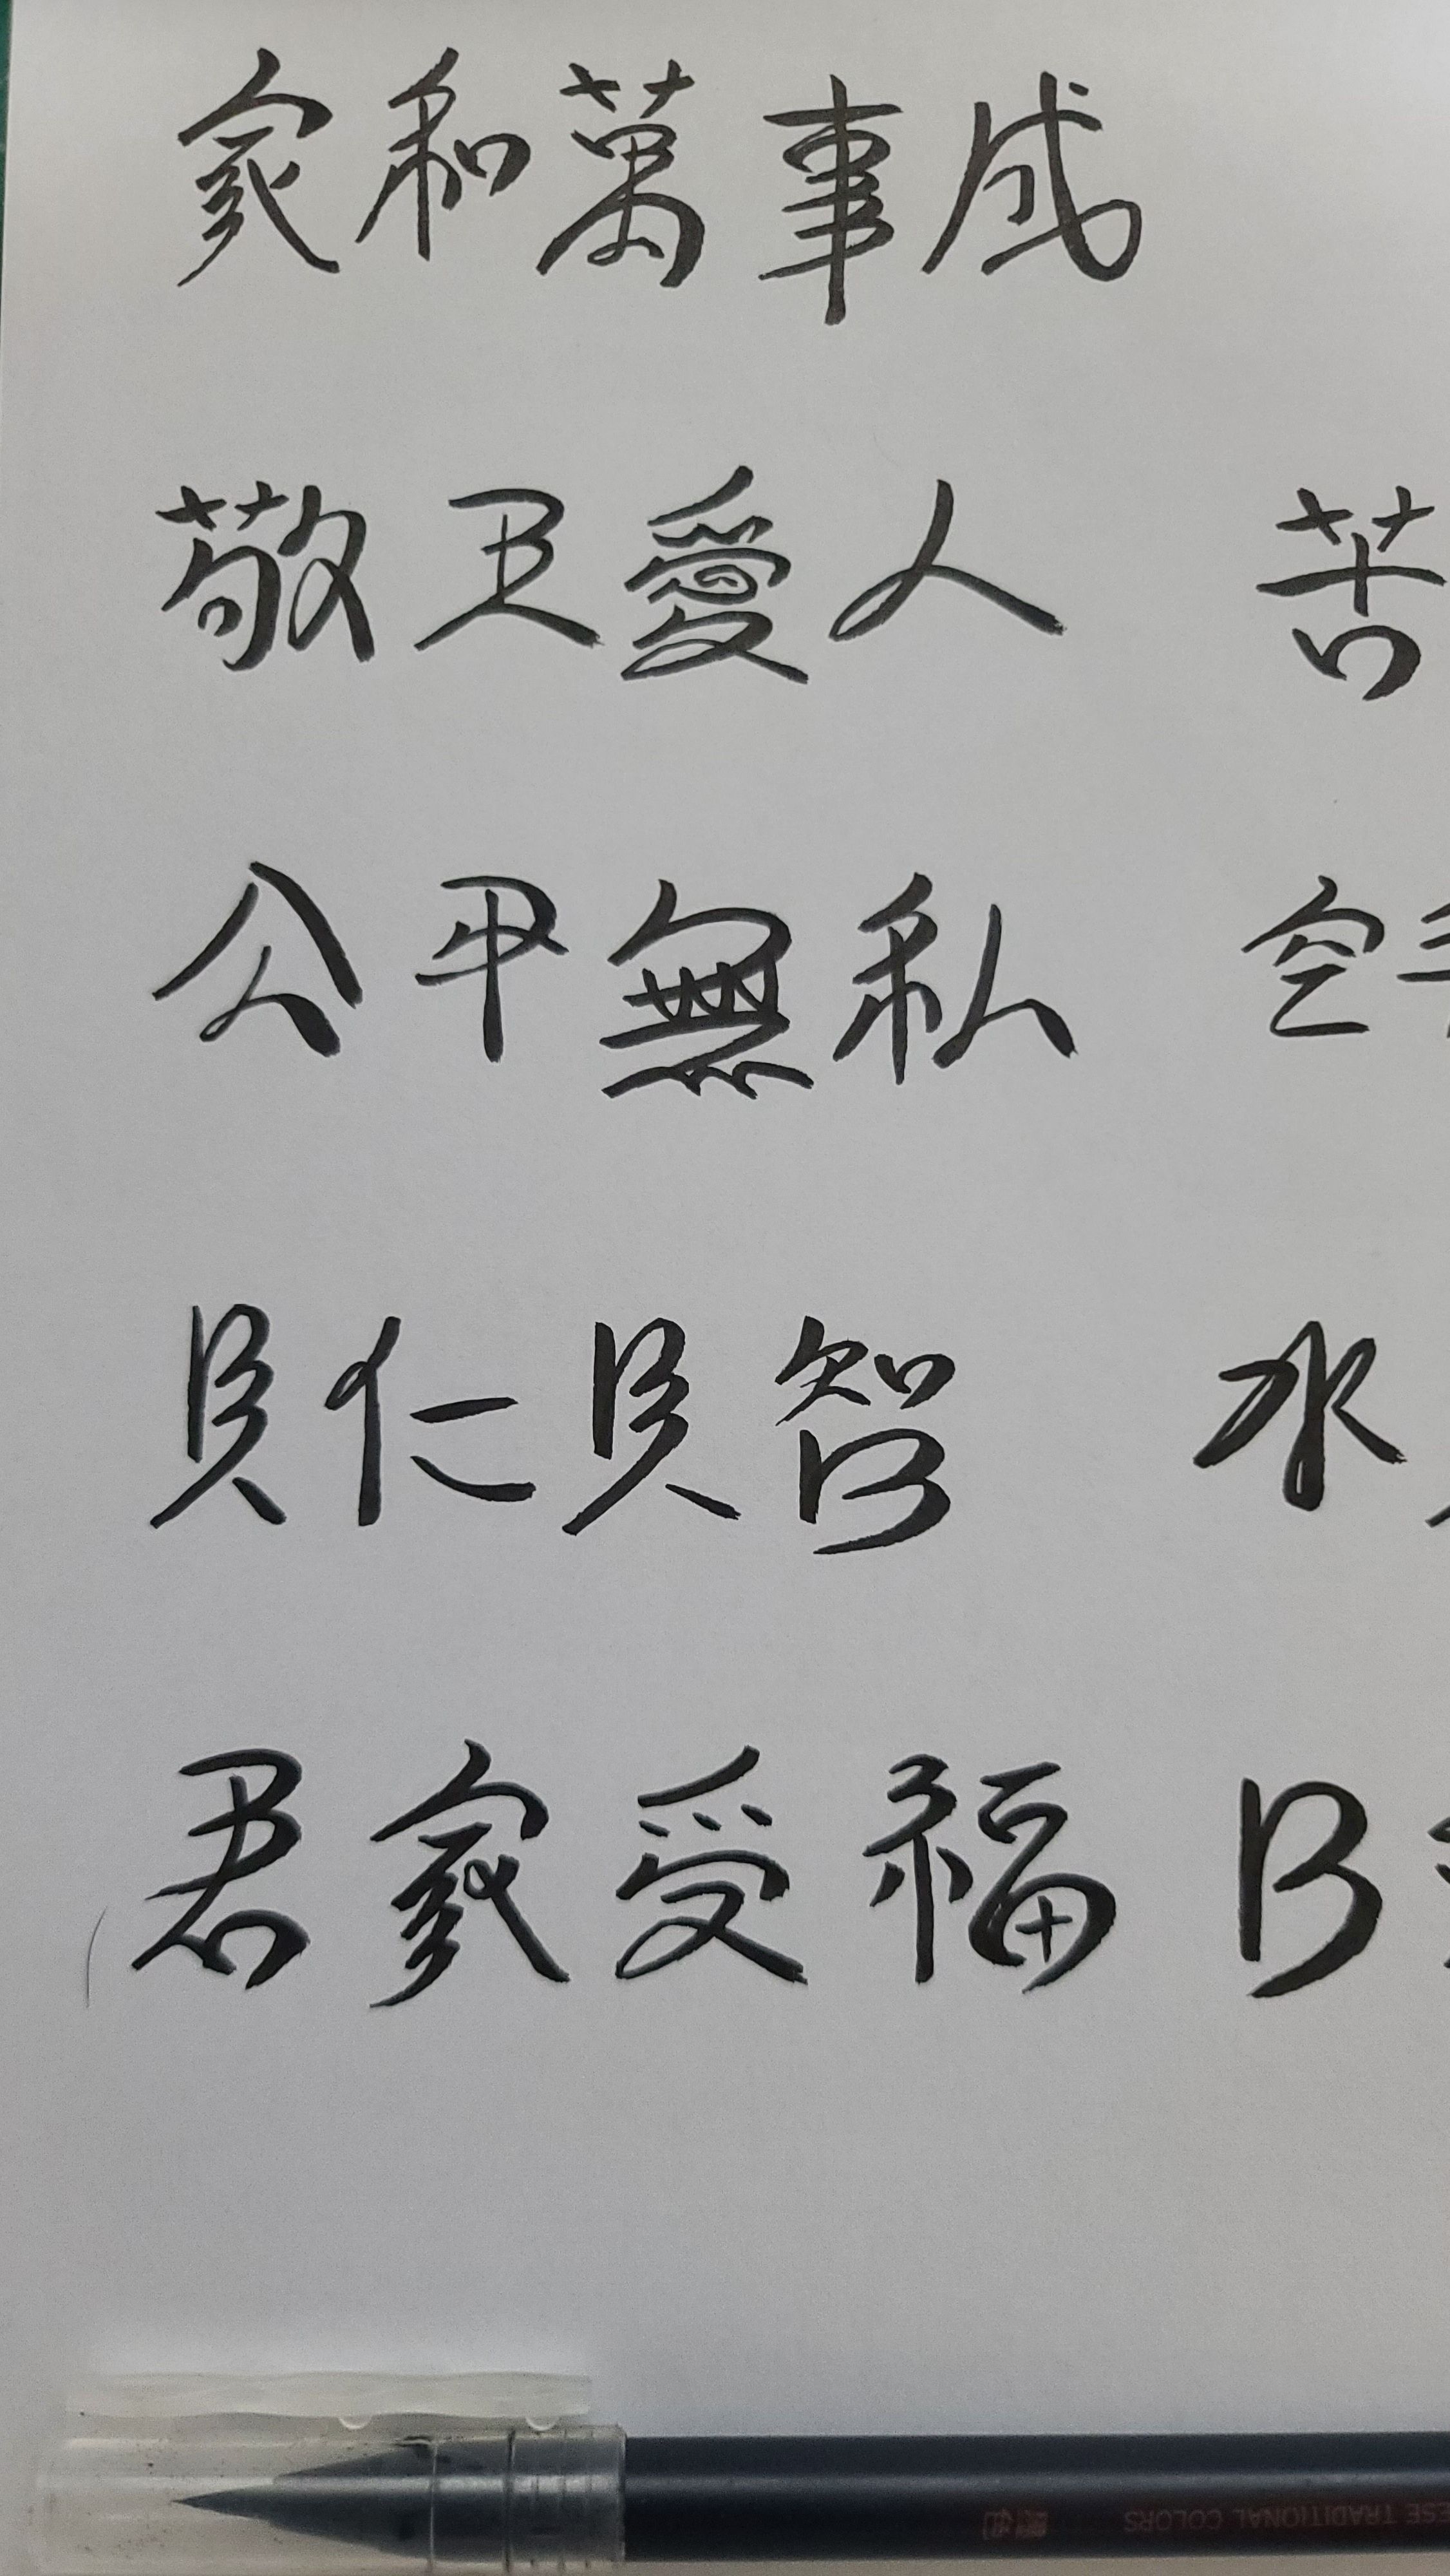 家和萬事成
敬天愛人 苦
公平無私 空
見仁見智 水
君家受福 日
ESE TRADITIONAL COLORS